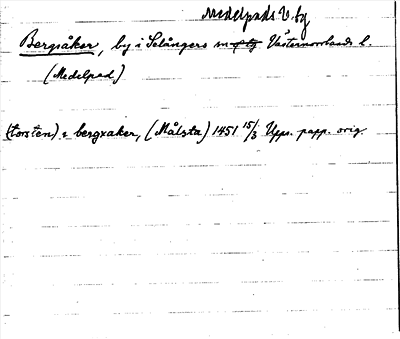 Medelpads V. tg
Bergsåker, by i Selångers sn o tg Västernorrlands l.
(Medelpad)
(torsten) i bergxaker, (Målsta) 1451 15/3 Upps. papp. orig.